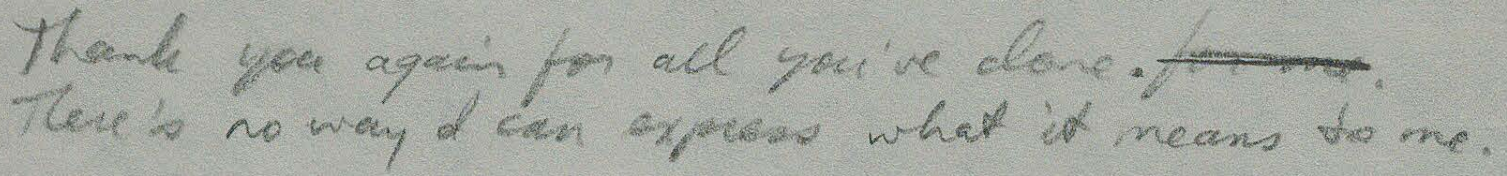 Thank you again for all you've done. for me.
There's no way I can express what it means to me.